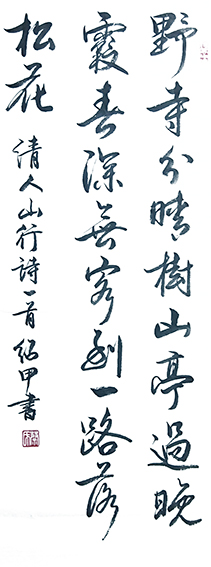 野寺分晴樹山亭過晚
霞春深無客到一路落
松花 清人山行詩一首 紹甲書